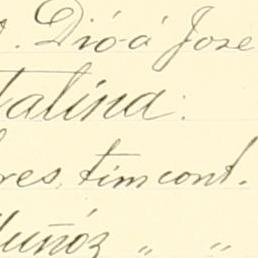 . Dió-á Jose
talina:
res, timcont.
Muñóz „ „